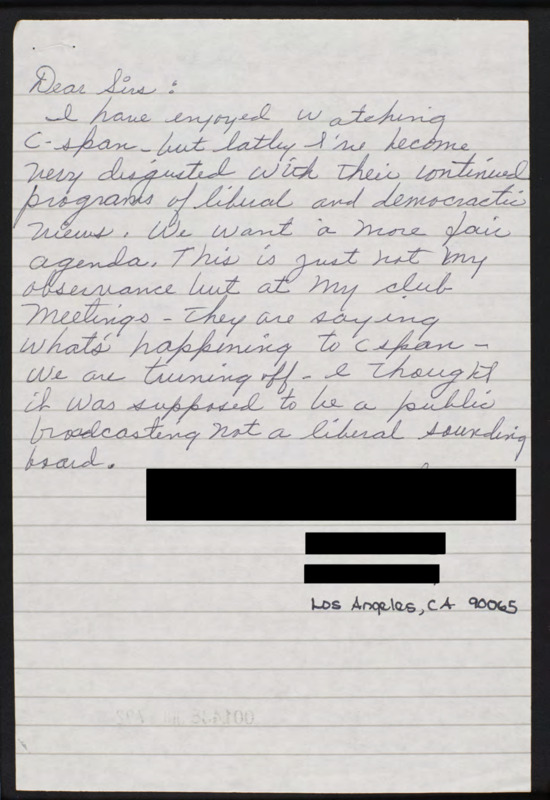 Dear Sirs :
I have enjoyed watching
C-span - but latley I've become
very disgusted with their continued
programs of libual and democractic
views. We want a more fair
agenda. This is just not my
observance but at my club
Meetings - they are saying
what's happening to cspan -
we are turning off - I thought
it was supposed to be a public
broadcasting not a liberal sounding
board.
Los Angeles, CA 90065